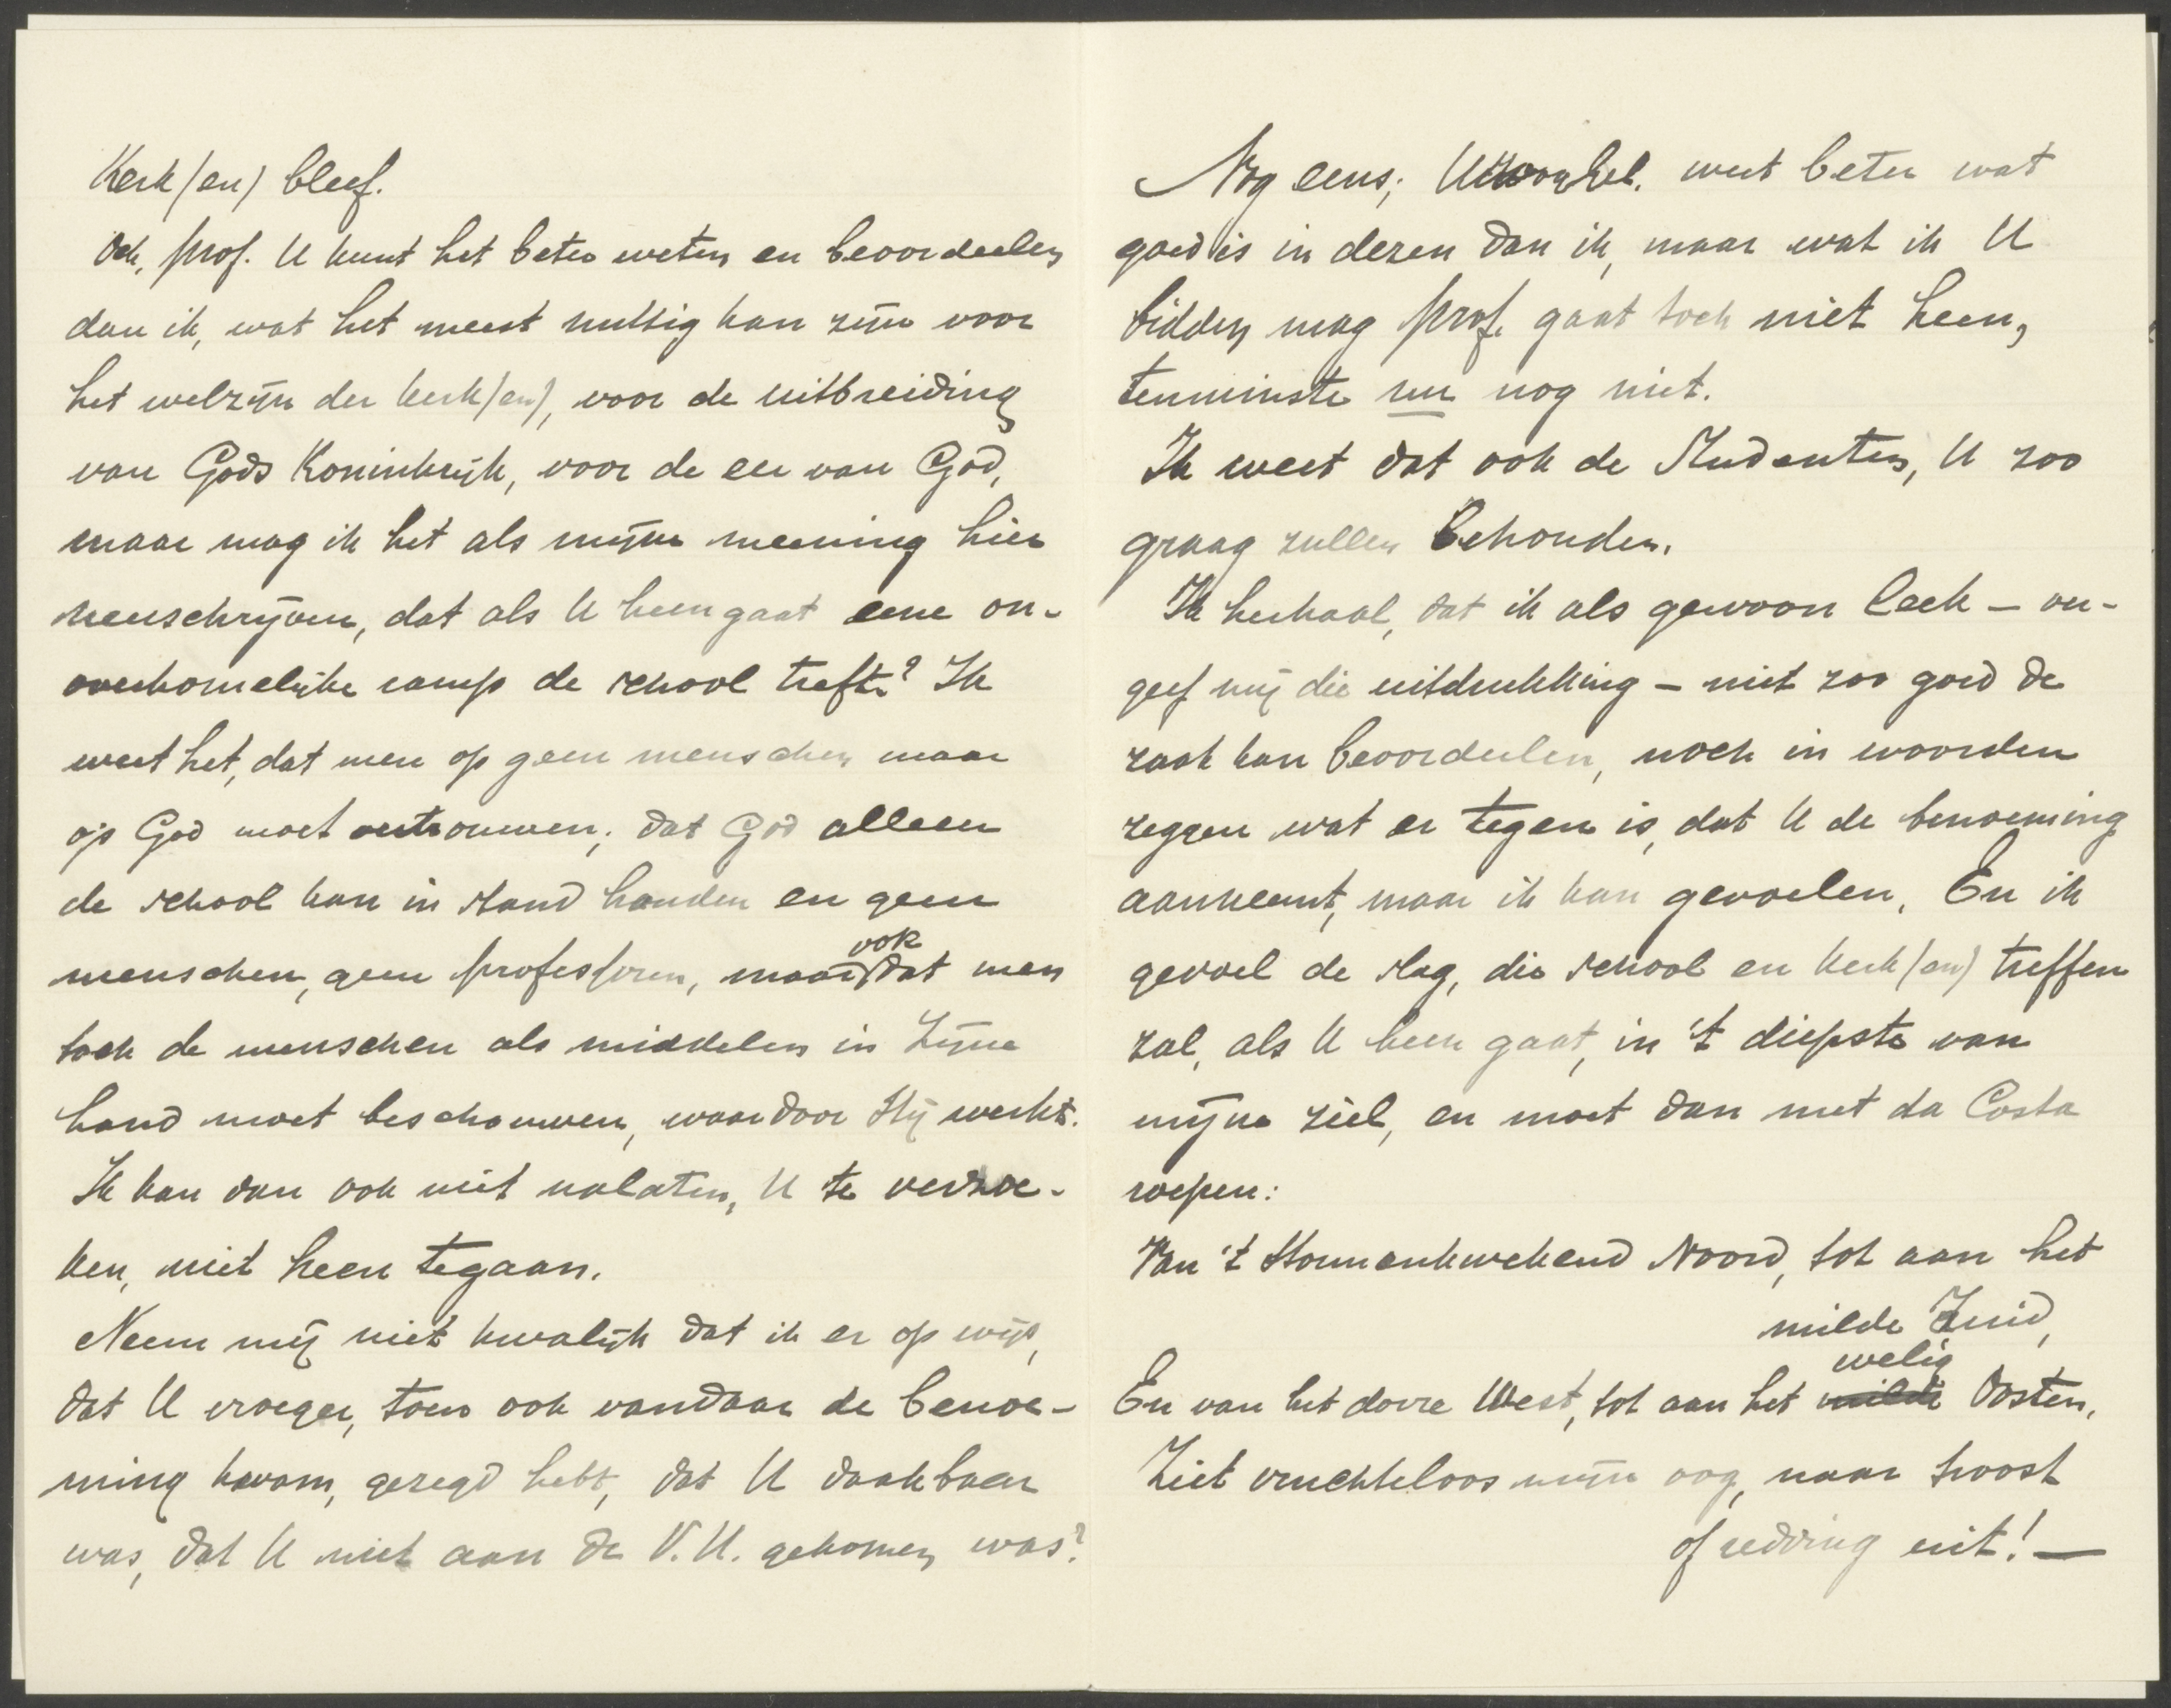 Kerk(en) bleef.
Och, prof. U kunt het beter weten en beoordeelen
dan ik, wat het meest nuttig kan zijn voor
het welzijn der kerk(en), voor de uitbreiding
van Gods Koninkrijk, voor de eer van God,
maar mag ik het als mijne meening hier
neerschrijven, dat als U heengaat eene on-
overkomelijke ramp de school treft? Ik
weet het, dat men op geen menschen maar
op God moet vertrouwen; dat God alleen
de school kan in stand houden en geen
menschen, geen professoren, maar ook dat men
toch de menschen als middelen in Zijne
hand moet beschouwen, waardoor Hij werkt.
Ik kan dan ook niet nalaten, U te verzoe-
ken, niet heen tegaan.
Neem mij niet kwalijk dat ik er op wijs,
dat U vroeger, toen ook vandaar de benoe-
ming kwam, gezegd hebt, dat U dankbaar
was, dat U niet aan de V.U. gekomen was?
Nog eens; U weet beter wat
goed is in dezen dan ik, maar wat ik U
bidden mag prof. gaat toch niet heen,
tenminste nu nog niet.
Ik weet dat ook de Studenten, U zoo
graag zullen behouden.
Ik herhaal, dat ik als gewoon leek – ver-
geef mij die uitdrukking – niet zoo goed de
zaak kan beoordeelen, noch in woorden
zeggen wat er tegen is, dat U de benoeming
aanneemt, maar ik kan gevoelen. En ik
gevoel de slag, die school en kerk(en) treffen
zal, als U heen gaat, in 't diepste van
mijne ziel, en moet dan met da Costa
roepen:
Van 't stormenkwekend Noord, tot aan het
milde Zuid,
En van het dorre West, tot aan het milde welig Oosten,
Ziet vruchteloos mijn oog, naar troost
of redding uit! —